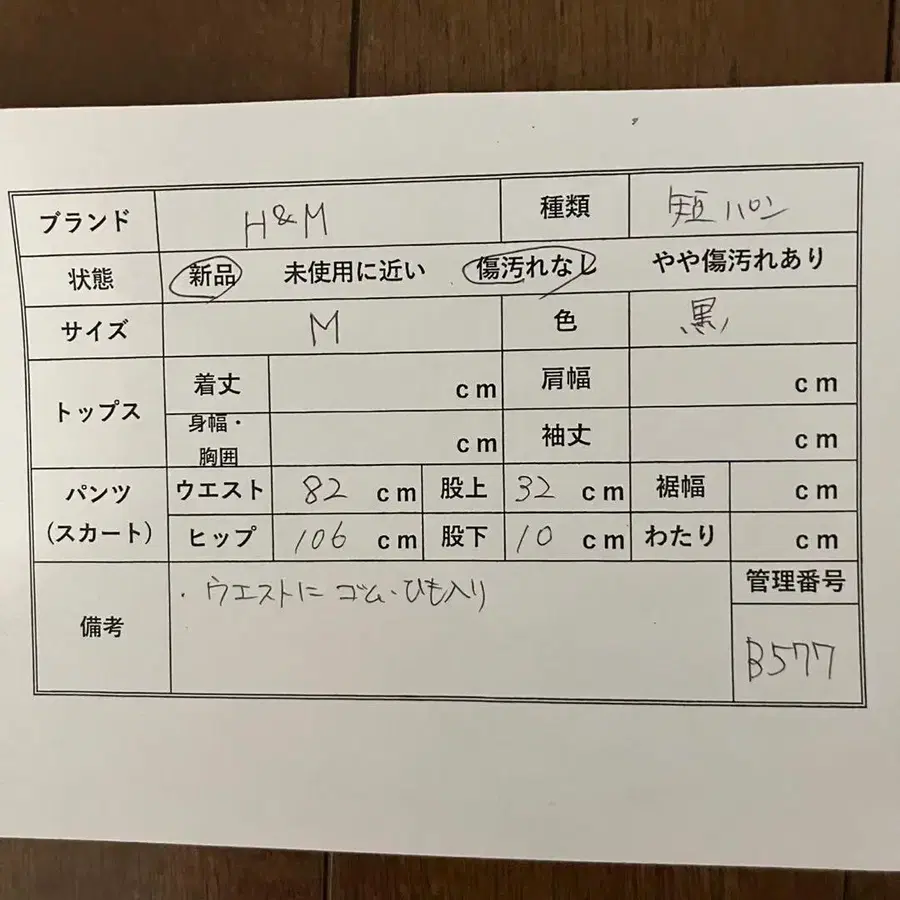 ブランド H&M 種類 短パン
状態 新品 未使用に近い 傷汚れなし やや傷汚れあり
サイズ M 色 黒
トップス 着丈 cm 肩幅 cm
身幅・胸囲 cm 袖丈 cm
パンツ(スカート) ウエスト 82 cm 股上 32 cm 裾幅 cm
ヒップ 106 cm 股下 10 cm わたり cm
備考 ・ウエストにゴム・ひも入り 管理番号
B577